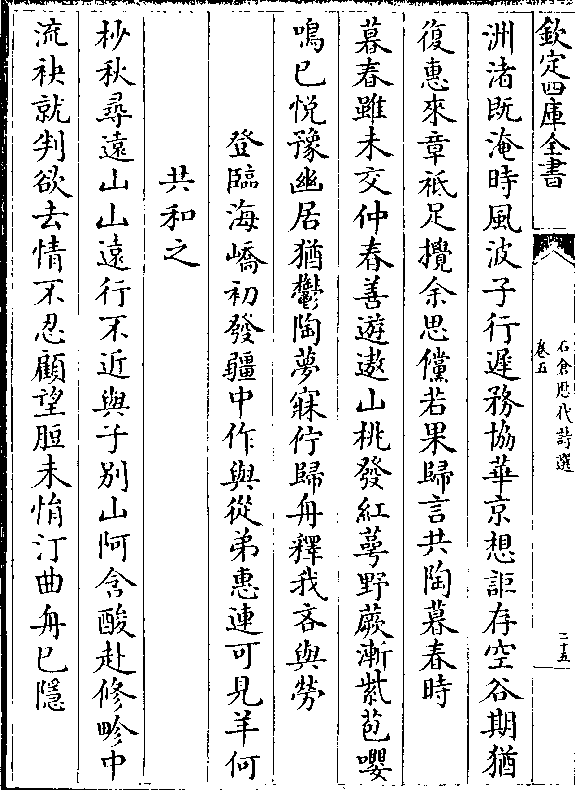 欽定四庫全書
石倉歷代詩選
卷五
二五
洲渚既淹時風波子行遲務協華京想詎存空谷期猶
復惠來章祗足攪余思儻若果歸言共陶暮春時
暮春雖未交仲春善遊遨山桃發紅萼野蕨漸紫苞嚶
鳴已悅豫幽居猶鬱陶夢寐佇歸舟釋我吝與勞
登臨海嶠初發疆中作與從弟惠連可見羊何
共和之
杪秋尋遠山山遠行不近與子別山阿含酸赴修畛中
流袂就判欲去情不忍顧望脰未悁汀曲舟已隱